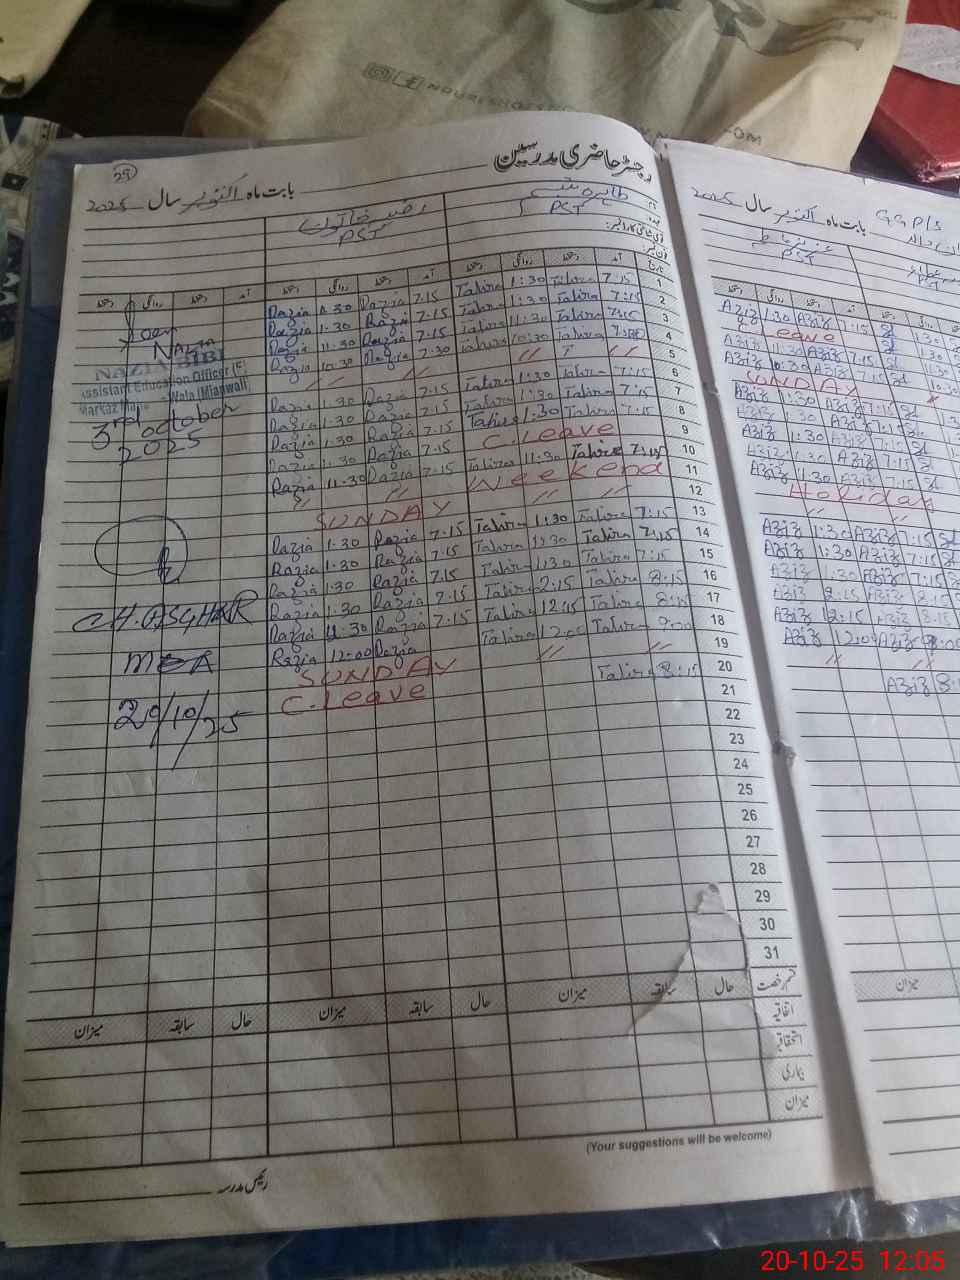 NOURISHOFF
.COM
29
رجسٹر حاضری مدرسین
بابت ماہ اکتوبر سال 2025
نام طاہرہ رضیہ خاتون
عہدہ PST PST
فون نمبر:
تاریخ آمد دستخط روانگی دستخط آمد دستخط روانگی دستخط آمد دستخط روانگی دستخط
1 7:15 Tahira 1:30 Tahira 7:15 Razia 1:30 Razia
2 7:15 Tahira 1:30 Tahira 7:15 Razia 1:30 Razia
3 7:15 Tahira 11:30 Tahira 7:15 Razia 11:30 Razia
4 Tahira 10:30 Tahira 7:30 Razia 10:30 Razia
5 " " " "
6 7:15 Tahira 1:30 Tahira 7:15 Razia 1:30 Razia
7 7:15 Tahira 1:30 Tahira 7:15 Razia 1:30 Razia
8 7:15 Tahira 1:30 Tahira 7:15 Razia 1:30 Razia
9 C. Leave 7:15 Razia 1:30 Razia
10 7:15 Tahira 11:30 Tahira 7:15 Razia 11:30 Razia
11 Weekend " "
12 " " SUNDAY
13 7:15 Tahira 1:30 Tahira 7:15 Razia 1:30 Razia
14 7:15 Tahira 1:30 Tahira 7:15 Razia 1:30 Razia
15 7:15 Tahira 1:30 Tahira 7:15 Razia 1:30 Razia
16 8:15 Tahira 2:15 Tahira 7:15 Razia 1:30 Razia
17 8:15 Tahira 12:15 Tahira 7:15 Razia 11:30 Razia
18 9:00 Tahira 12:00 Tahira Razia 12:00 Razia
19 " " SUNDAY
20 8:15 Tahira C. Leave
21
22
23
24
25
26
27
28
29
30
31
Seen
Nazia
NAZIA BIBI
Assistant Education Officer (F)
Markaz Wala (Mianwali)
3rd october
2025
CH. ASGHAR
MEA
20/10/25
قسم رخصت حال سابقہ میزان حال سابقہ میزان حال سابقہ میزان
اتفاقیہ
استحقاقیہ
بیماری
میزان
(Your suggestions will be welcome)
رئیس مدرسہ
GGP/S
بابت ماہ اکتوبر سال 2025
PST
PST
آمد دستخط روانگی دستخط
7:15 Aziz 1:30 Aziz
Leave
7:15 Aziz 11:30 Aziz
7:15 Aziz 10:30 Aziz
SUNDAY
7:15 Aziz 1:30 Aziz
7:15 Aziz 1:30 Aziz
7:15 Aziz 1:30 Aziz
7:15 Aziz 1:30 Aziz
7:15 Aziz 11:30 Aziz
Holiday
" "
7:15 Aziz 1:30 Aziz
7:15 Aziz 1:30 Aziz
7:15 Aziz 1:30 Aziz
8:15 Aziz 2:15 Aziz
8:15 Aziz 12:15 Aziz
8:00 Aziz 12:00 Aziz
" "
Aziz
میزان
20-10-25 12:05